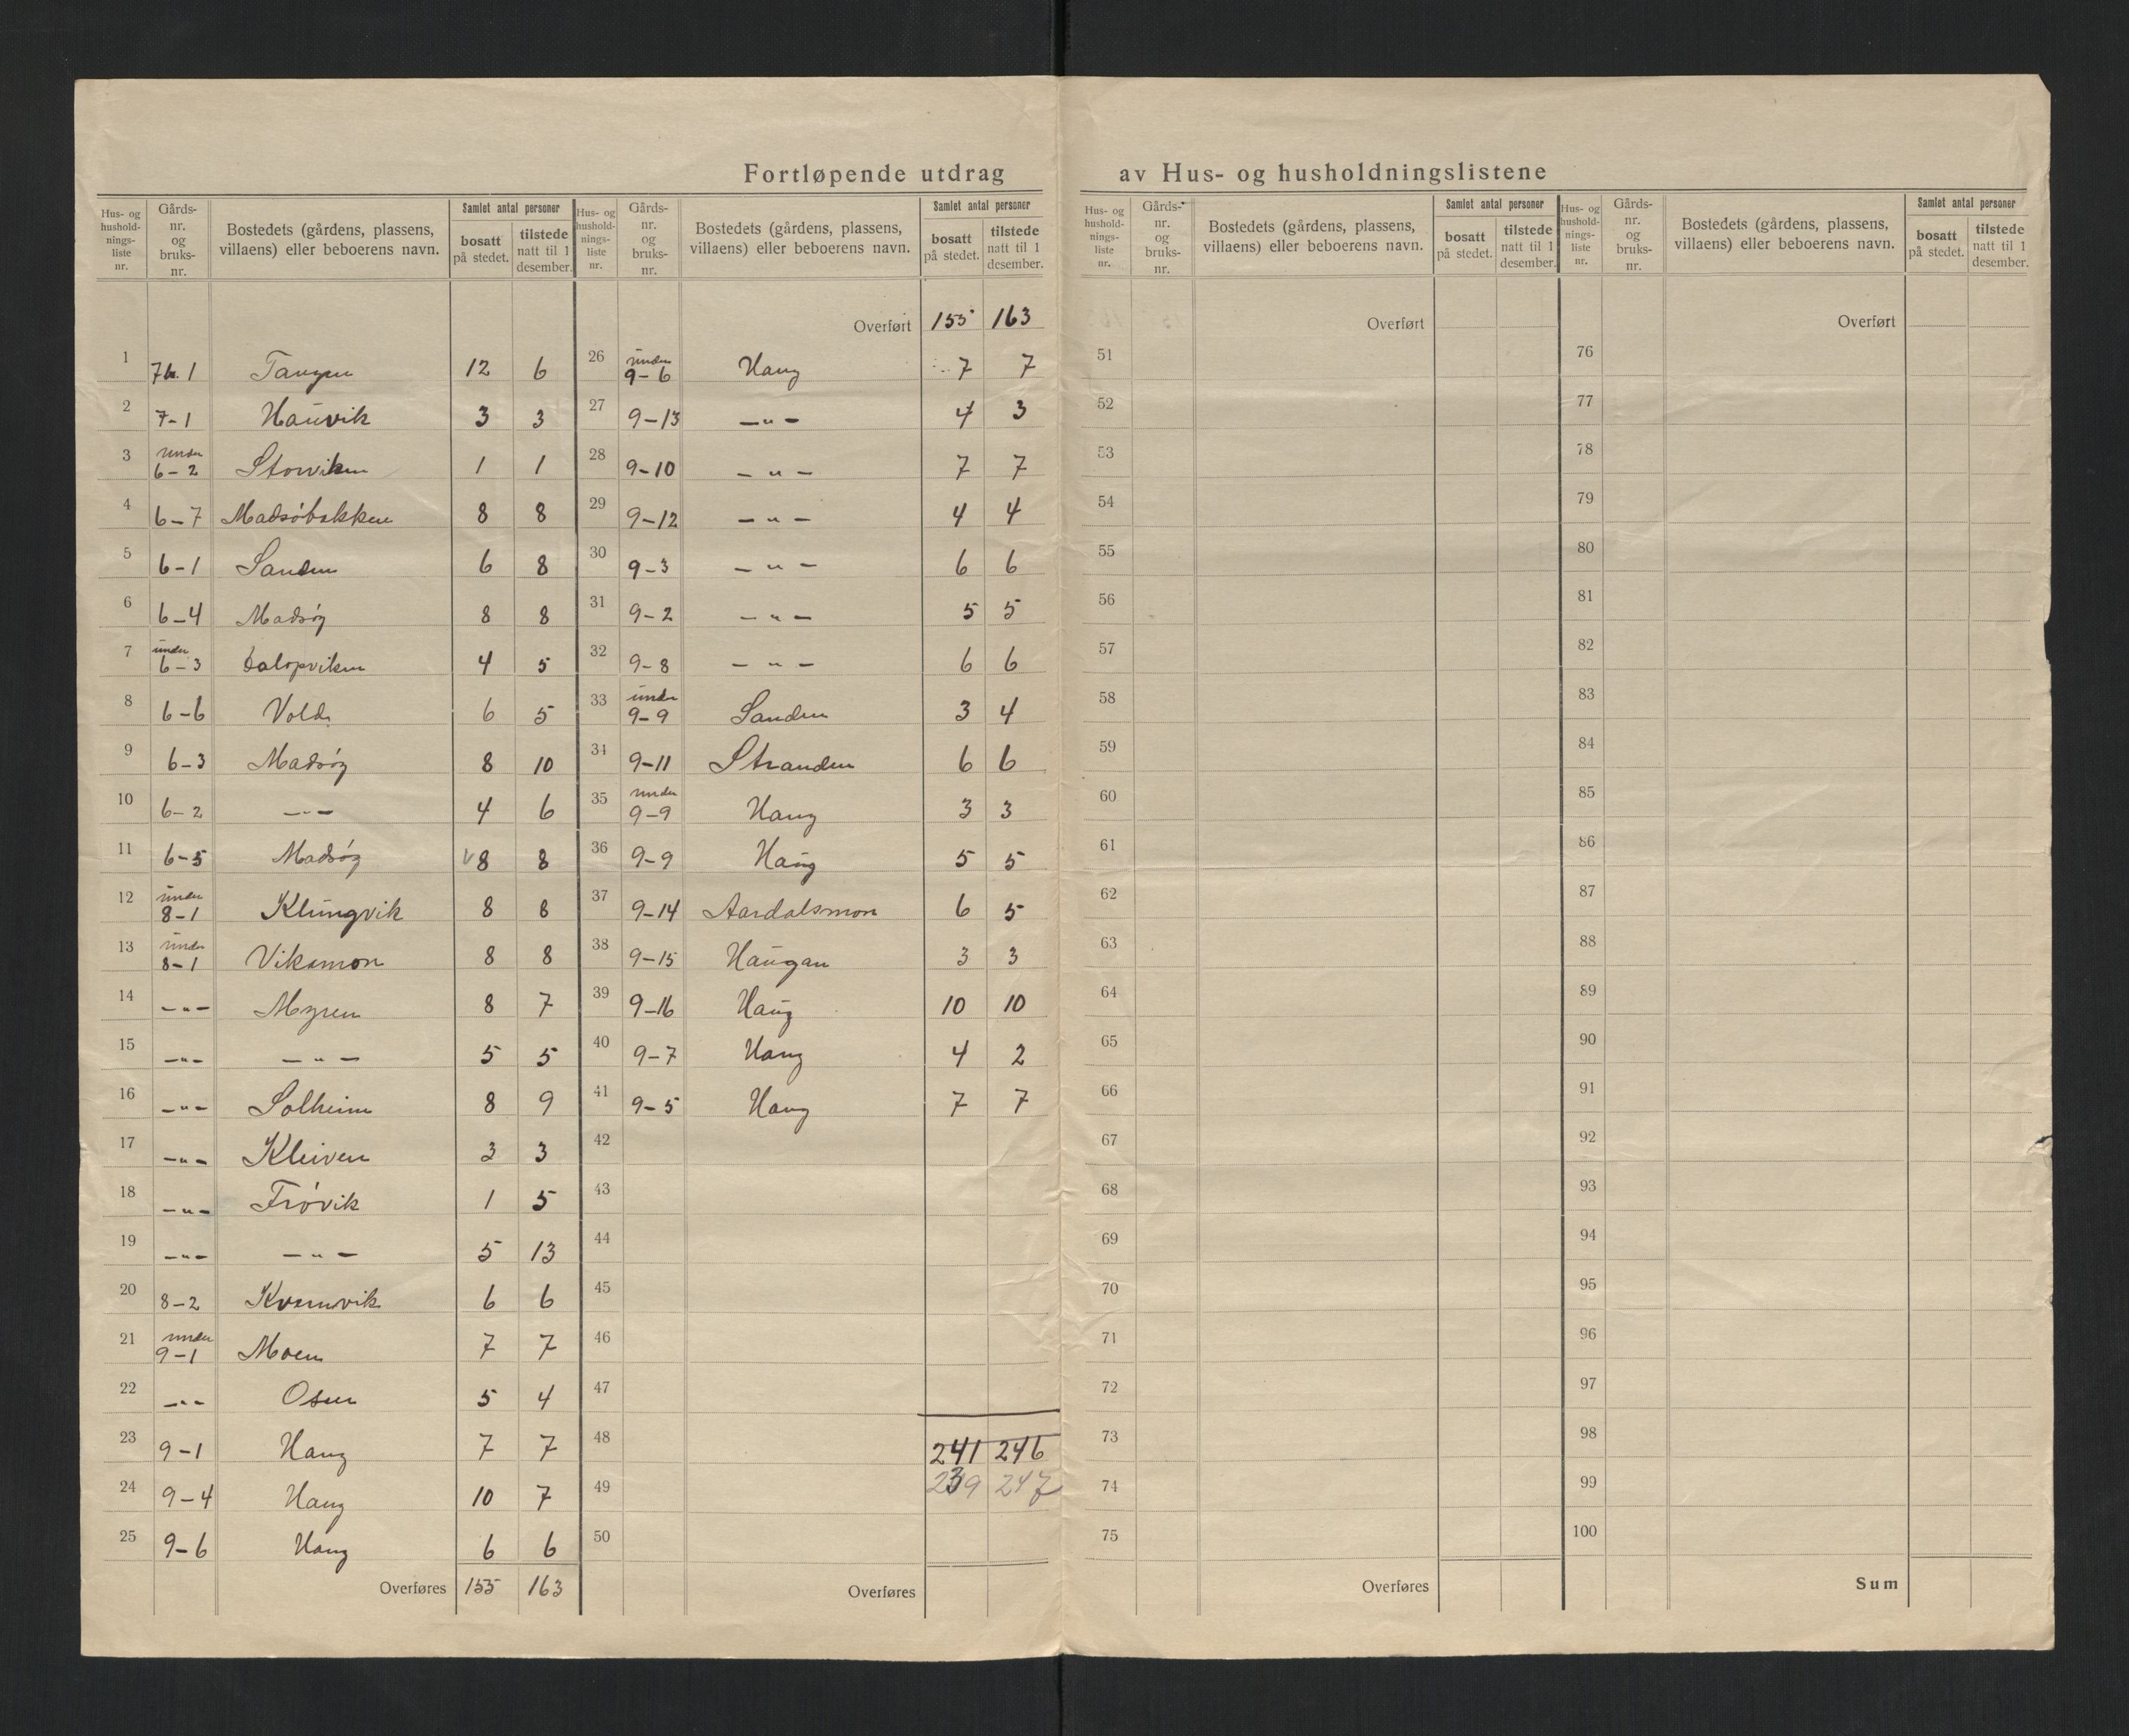 Fortløpende utdrag av Hus- og husholdningslistene
Hus- og hushold- nings- liste nr. | Gårds- nr. og bruks- nr. | Bostedets (gårdens, plassens, villaens) eller beboerens navn. | Samlet antal personer | bosatt på stedet. | tilstede natt til 1 desember.
1 7 1 Tangen 12 6
2 7-1 Hauvik 3 3
3 under 6-2 Storviken 1 1
4 6-7 Madsöbakken 8 8
5 6-1 Sanden 6 8
6 6-4 Madsöy 8 8
7 under 6-3 4 5
8 6-6 Vold 6 5
9 6-3 Madsöy 8 10
10 6-2 -"- 4 6
11 6-5 Madsöy 8 8
12 under 8-1 Klungvik 8 8
13 under 8-1 Viksmon 8 8
14 -"- Myren 8 7
15 -"- -"- 5 5
16 -"- Solheim 8 9
17 -"- Kleiven 3 3
18 -"- Frövik 1 5
19 -"- -"- 5 13
20 8-2 Kvernvik 6 6
21 under 9-1 Moen 7 7
22 -"- Osen 5 4
23 9-1 Haug 7 7
24 9-4 Haug 10 7
25 9-6 Haug 6 6
Overføres 155 163
Hus- og hushold- nings- liste nr. | Gårds- nr. og bruks- nr. | Bostedets (gårdens, plassens, villaens) eller beboerens navn. | Samlet antal personer | bosatt på stedet. | tilstede natt til 1 desember.
Overført 155 163
26 under 9-6 Haug 7 7
27 9-13 -"- 4 3
28 9-10 -"- 7 7
29 9-12 -"- 4 4
30 9-3 -"- 6 6
31 9-2 -"- 5 5
32 9-8 -"- 6 6
33 under 9-9 Sanden 3 4
34 9-11 Stranden 6 6
35 under 9-9 Haug 3 3
36 9-9 Haug 5 5
37 9-14 Aardalsmon 6 5
38 9-15 Haugan 3 3
39 9-16 Haug 10 10
40 9-7 Haug 4 2
41 9-5 Haug 7 7
42
43
44
45
46
47
48 241 246
49 239 247
50
Overføres
Hus- og hushold- nings- liste nr. | Gårds- nr. og bruks- nr. | Bostedets (gårdens, plassens, villaens) eller beboerens navn. | Samlet antal personer | bosatt på stedet. | tilstede natt til 1 desember.
Overført
51
52
53
54
55
56
57
58
59
60
61
62
63
64
65
66
67
68
69
70
71
72
73
74
75
Overføres
Hus- og hushold- nings- liste nr. | Gårds- nr. og bruks- nr. | Bostedets (gårdens, plassens, villaens) eller beboerens navn. | Samlet antal personer | bosatt på stedet. | tilstede natt til 1 desember.
Overført
76
77
78
79
80
81
82
83
84
85
86
87
88
89
90
91
92
93
94
95
96
97
98
99
100
Sum